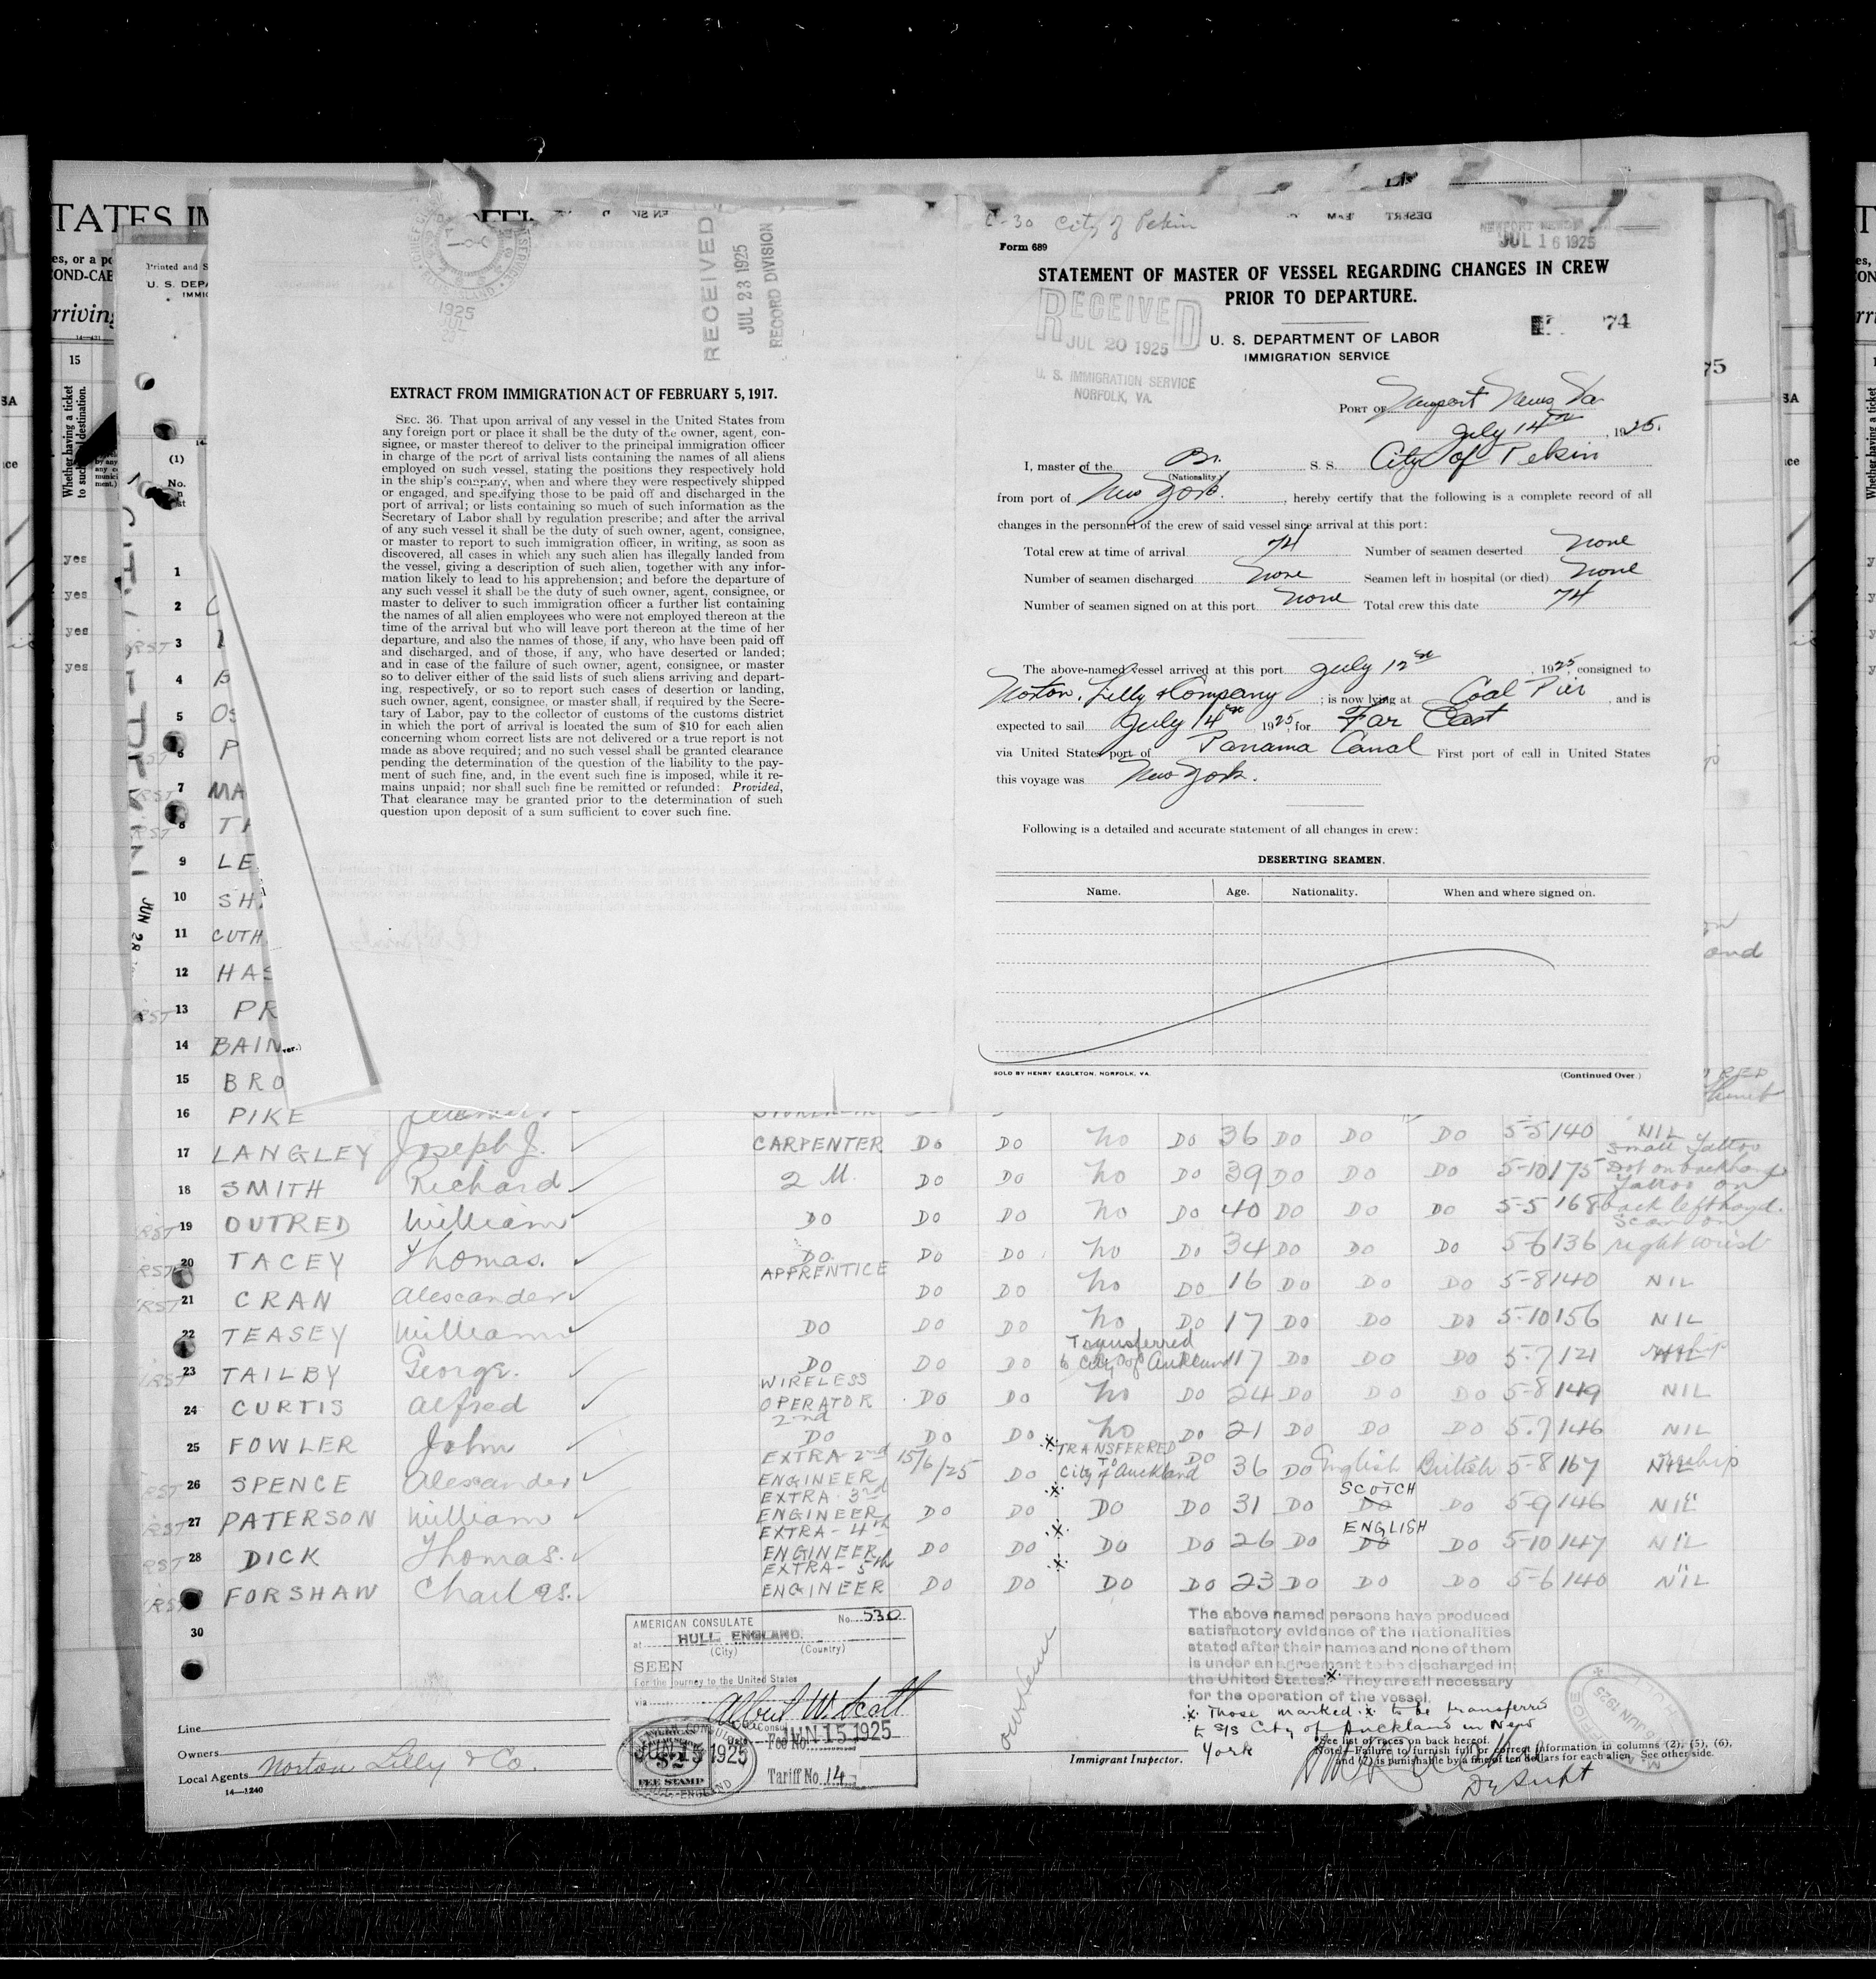 C-30 City of Pekin
Form 689
NEWPORT NEWS
JUL 16 1925
STATEMENT OF MASTER OF VESSEL REGARDING CHANGES IN CREW
PRIOR TO DEPARTURE.
RECEIVED
JUL 20 1925
U. S. IMMIGRATION SERVICE
NORFOLK, VA.
U. S. DEPARTMENT OF LABOR
IMMIGRATION SERVICE
74
PORT OF Newport News Va
July 14th, 1925.
I, master of the Br. S. S. City of Pekin
(Nationality)
from port of New York, hereby certify that the following is a complete record of all
changes in the personnel of the crew of said vessel since arrival at this port:
Total crew at time of arrival 74 Number of seamen deserted none
Number of seamen discharged none Seamen left in hospital (or died) none
Number of seamen signed on at this port none Total crew this date 74
The above-named vessel arrived at this port July 12, 1925, consigned to
Norton, Lilly & Company; is now lying at Coal Pier, and is
expected to sail July 14, 1925, for Far East
via United States port of Panama Canal First port of call in United States
this voyage was New York.
Following is a detailed and accurate statement of all changes in crew:
DESERTING SEAMEN.
Name. Age. Nationality. When and where signed on.
SOLD BY HENRY EAGLETON, NORFOLK, VA.
(Continued Over.)
1925
RECEIVED
JUL 23 1925
RECORD DIVISION
EXTRACT FROM IMMIGRATION ACT OF FEBRUARY 5, 1917.
SEC. 36. That upon arrival of any vessel in the United States from
any foreign port or place it shall be the duty of the owner, agent, con-
signee, or master thereof to deliver to the principal immigration officer
in charge of the port of arrival lists containing the names of all aliens
employed on such vessel, stating the positions they respectively hold
in the ship's company, when and where they were respectively shipped
or engaged, and specifying those to be paid off and discharged in the
port of arrival; or lists containing so much of such information as the
Secretary of Labor shall by regulation prescribe; and after the arrival
of any such vessel it shall be the duty of such owner, agent, consignee,
or master to report to such immigration officer, in writing, as soon as
discovered, all cases in which any such alien has illegally landed from
the vessel, giving a description of such alien, together with any infor-
mation likely to lead to his apprehension; and before the departure of
any such vessel it shall be the duty of such owner, agent, consignee, or
master to deliver to such immigration officer a further list containing
the names of all alien employees who were not employed thereon at the
time of the arrival but who will leave port thereon at the time of her
departure, and also the names of those, if any, who have been paid off
and discharged, and of those, if any, who have deserted or landed;
and in case of the failure of such owner, agent, consignee, or master
so to deliver either of the said lists of such aliens arriving and depart-
ing, respectively, or so to report such cases of desertion or landing,
such owner, agent, consignee, or master shall, if required by the Secre-
tary of Labor, pay to the collector of customs of the customs district
in which the port of arrival is located the sum of $10 for each alien
concerning whom correct lists are not delivered or a true report is not
made as above required; and no such vessel shall be granted clearance
pending the determination of the question of the liability to the pay-
ment of such fine, and, in the event such fine is imposed, while it re-
mains unpaid; nor shall such fine be remitted or refunded: Provided,
That clearance may be granted prior to the determination of such
question upon deposit of a sum sufficient to cover such fine.
15
Whether having a ticket
to such final destination.
yes
yes
yes
yes
(1)
No.
1
2
3
4
5
6
7 MA
8
9 LE
10 SH
11 CUTH
12 HAS
13 PR
14 BAIN
15 BRO
16 PIKE
17 LANGLEY Joseph J. CARPENTER DO DO no DO 36 DO DO DO 5-5 140 NIL
18 SMITH Richard 2 M. DO DO no DO 39 DO DO DO 5-10 175 small Tattoo Dot on back hand
19 OUTRED William DO DO DO no DO 40 DO DO DO 5-5 168 Tattoo on back left hand.
20 TACEY Thomas. DO. DO DO no DO 34 DO DO DO 5-6 136 Scar on right wrist
21 CRAN Alexander APPRENTICE DO DO no DO 16 DO DO DO 5-8 140 NIL
22 TEASEY William DO DO DO no DO 17 DO DO DO 5-10 156 NIL
23 TAILBY George. DO DO DO Transferred to City of Auckland 17 DO DO DO 5-7 121 NIL
24 CURTIS Alfred WIRELESS OPERATOR DO DO no DO 24 DO DO DO 5-8 149 NIL
25 FOWLER John 2nd DO DO DO no DO 21 DO DO DO 5-7 146 NIL
26 SPENCE Alexander EXTRA 2nd ENGINEER 15/6/25 DO TRANSFERRED TO City of Auckland DO 36 DO English British 5-8 167 NIL
27 PATERSON William EXTRA 3rd ENGINEER DO DO DO DO 31 DO SCOTCH DO 5-9 146 NIL
28 DICK Thomas. EXTRA-4th ENGINEER DO DO DO DO 26 DO ENGLISH DO 5-10 147 NIL
FORSHAW Charles. EXTRA-5th ENGINEER DO DO DO DO 23 DO DO DO 5-6 140 NIL
30
JUN 28
AMERICAN CONSULATE No. 530
at HULL ENGLAND.
(City) (Country)
SEEN
For the journey to the United States
via
Albert W. Scott
JUN 15 1925
Fee No.
Tariff No. 14
JUN 15 1925
$2
FEE STAMP
The above named persons have produced
satisfactory evidence of the nationalities
stated after their names and none of them
is under an agreement to be discharged in
the United States. They are all necessary
for the operation of the vessel.
Those marked x to be transferred
to S/S City of Auckland in New
York
Line
Owners
Local Agents Norton Lilly & Co.
14—1240
Immigrant Inspector.
See list of races on back hereof.
Note.—Failure to furnish full or correct information in columns (2), (5), (6),
and (7) is punishable by a fine of ten dollars for each alien. See other side.